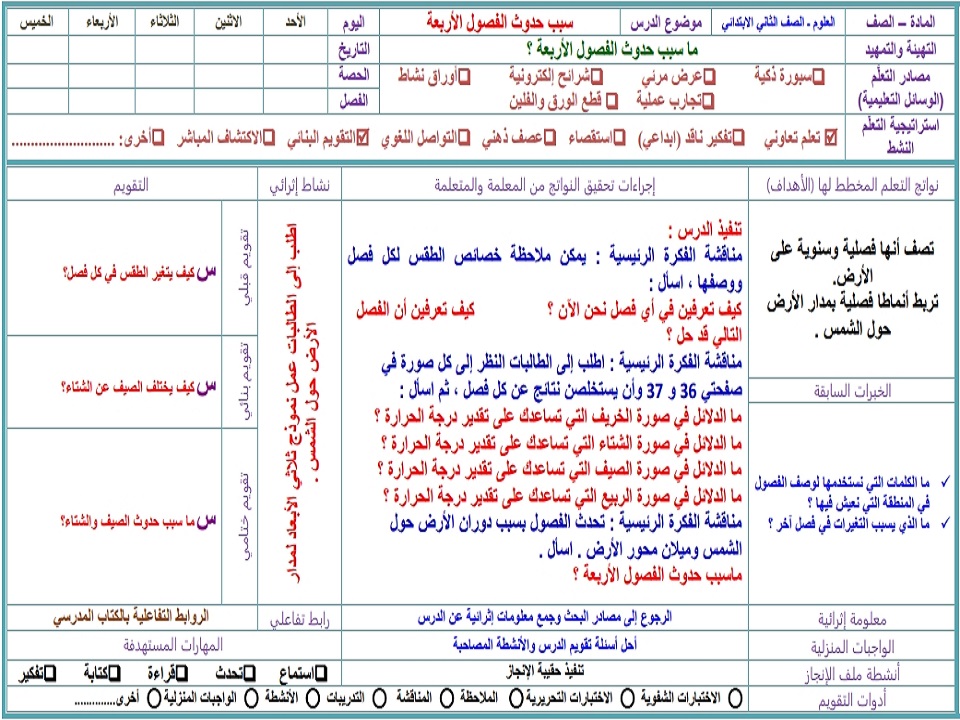 المادة – الصف
العلوم ـ الصف الثاني الابتدائي
موضوع الدرس
سبب حدوث الفصول الأربعة
اليوم
الأحد
الاثنين
الثلاثاء
الأربعاء
الخميس
التهيئة والتمهيد
ما سبب حدوث الفصول الأربعة ؟
التاريخ
مصادر التعلّم
(الوسائل التعليمية)
سبورة ذكية
عرض مرئي
شرائح إلكترونية
أوراق نشاط
تجارب عملية
قطع الورق والفلين
الحصة
الفصل
استراتيجية التعلّم
النشط
تعلم تعاوني
تفكير ناقد (ابداعي)
استقصاء
عصف ذهني
التواصل اللغوي
التقويم البنائي
الاكتشاف المباشر
أخرى: ..........................
نواتج التعلم المخطط لها (الأهداف)
إجراءات تحقيق النواتج من المعلمة والمتعلمة
نشاط إثرائي
التقويم
تصف أنها فصلية وسنوية على
الأرض.
تربط أنماطا فصلية بمدار الأرض
حول الشمس .
الخبرات السابقة
ما الكلمات التي نستخدمها لوصف الفصول
في المنطقة التي نعيش فيها ؟
ما الذي يسبب التغيرات في فصل آخر ؟
تنفيذ الدرس :
مناقشة الفكرة الرئيسية : يمكن ملاحظة خصائص الطقس لكل فصل
ووصفها ، اسأل :
كيف تعرفين في أي فصل نحن الآن ؟ كيف تعرفين أن الفصل
التالي قد حل ؟
مناقشة الفكرة الرئيسية : اطلب إلى الطالبات النظر إلى كل صورة في
صفحتي 36 و 37 وأن يستخلصن نتائج عن كل فصل ، ثم اسأل :
ما الدلائل في صورة الخريف التي تساعدك على تقدير درجة الحرارة ؟
ما الدلائل في صورة الشتاء التي تساعدك على تقدير درجة الحرارة ؟
ما الدلائل في صورة الصيف التي تساعدك على تقدير درجة الحرارة ؟
ما الدلائل في صورة الربيع التي تساعدك على تقدير درجة الحرارة ؟
مناقشة الفكرة الرئيسية : تحدث الفصول بسبب دوران الأرض حول
الشمس وميلان محور الأرض . اسأل .
ماسبب حدوث الفصول الأربعة ؟
اطلب إلى الطالبات عمل نموذج ثلاثي الأبعاد لمدار
الأرض حول الشمس .
تقويم قبلي
س كيف يتغير الطقس في كل فصل؟
تقويم بنائي
س كيف يختلف الصيف عن الشتاء؟
تقويم ختامي
س ما سبب حدوث الصيف والشتاء؟
معلومة إثرائية
الرجوع إلى مصادر البحث وجمع معلومات إثرائية عن الدرس
رابط تفاعلي
الروابط التفاعلية بالكتاب المدرسي
الواجبات المنزلية
أحل أسئلة تقويم الدرس والأنشطة المصاحبة
المهارات المستهدفة
أنشطة ملف الإنجاز
تنفيذ حقيبة الإنجاز
استماع
تحدث
قراءة
كتابة
تفكير
أدوات التقويم
الاختبارات الشفوية
الاختبارات التحريرية
الملاحظة
المناقشة
التدريبات
الأنشطة
الواجبات المنزلية
أخرى..............